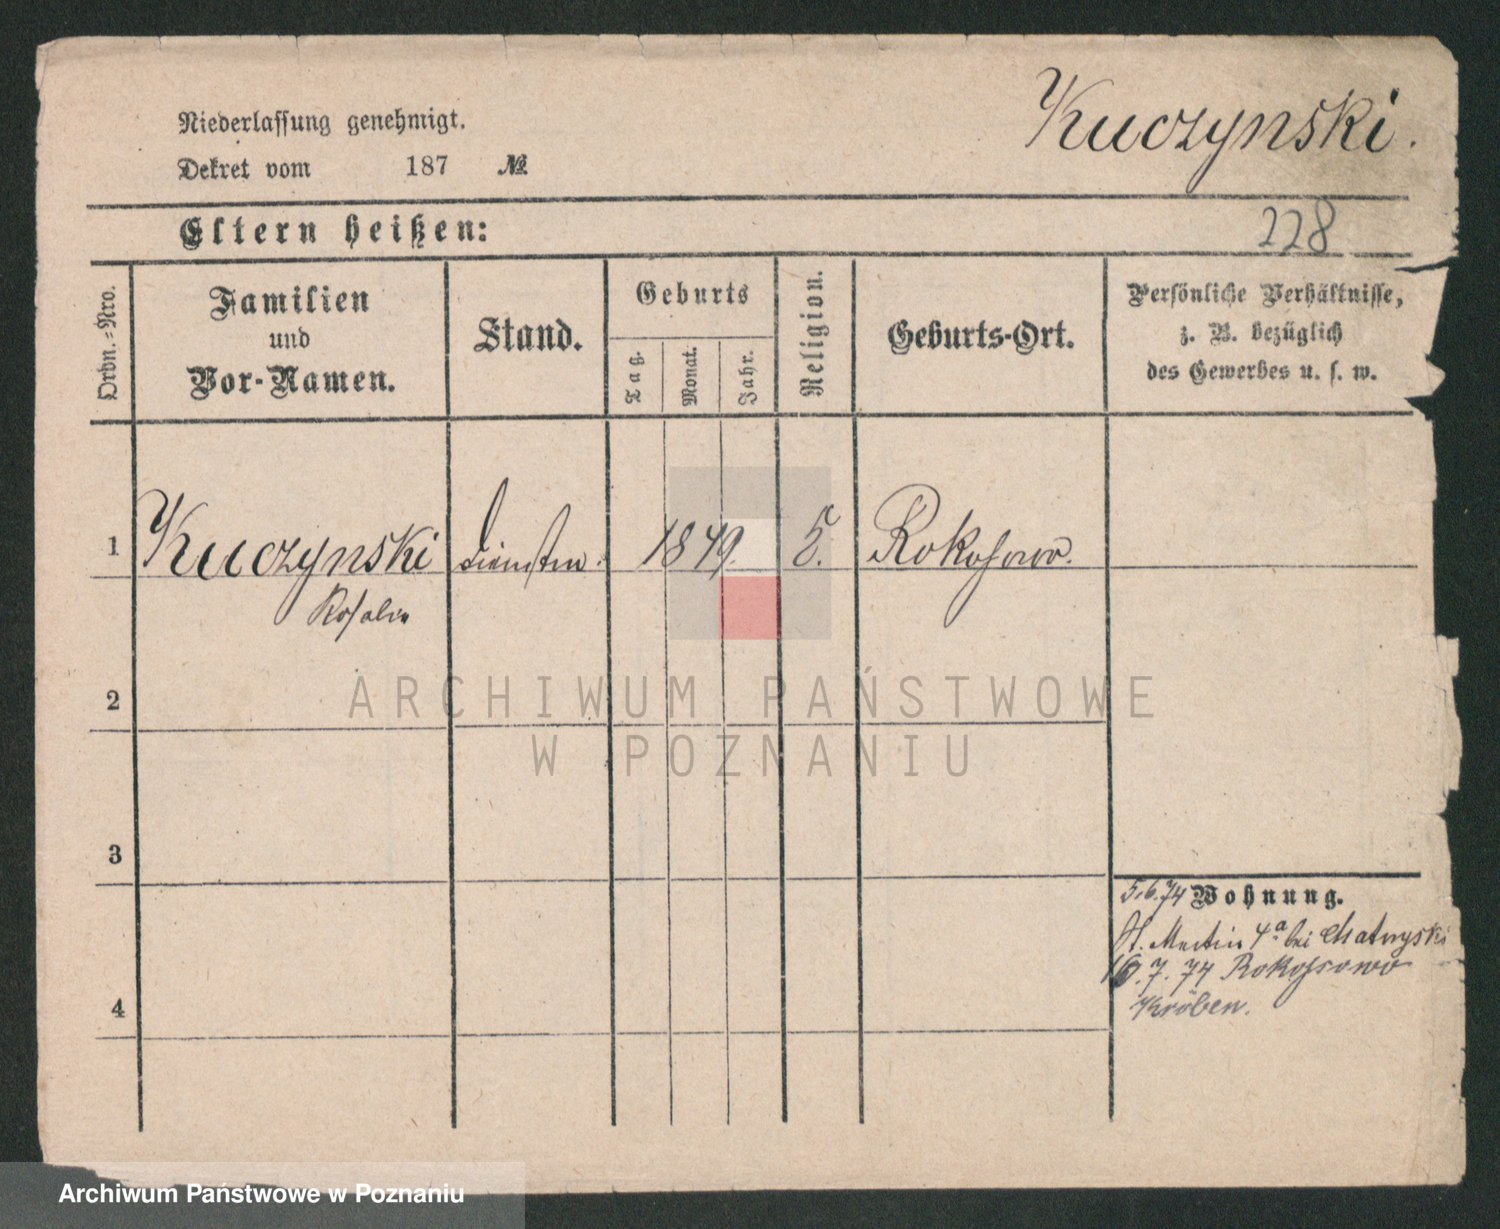 Kuczynski.
Niederlassung genehmigt.
Dekret vom 187 №
228
Eltern heißen:
Ordn.-Nro.
Familien
und
Vor-Namen.
Stand.
Geburts
Tag.
Monat.
Jahr.
Religion.
Geburts-Ort.
Persönliche Verhältnisse,
z. B. bezüglich
des Gewerbes u. s. w.
1 Kuczynski 1849. Rokosowo.
Rosalie
ARCHIWUM PAŃSTWOWE
W POZNANIU
2
3
5.6.74 Wohnung.
St. Martin 4a bei
.7.74 Rokossowo
4
Kröben.
Archiwum Państwowe w Poznaniu